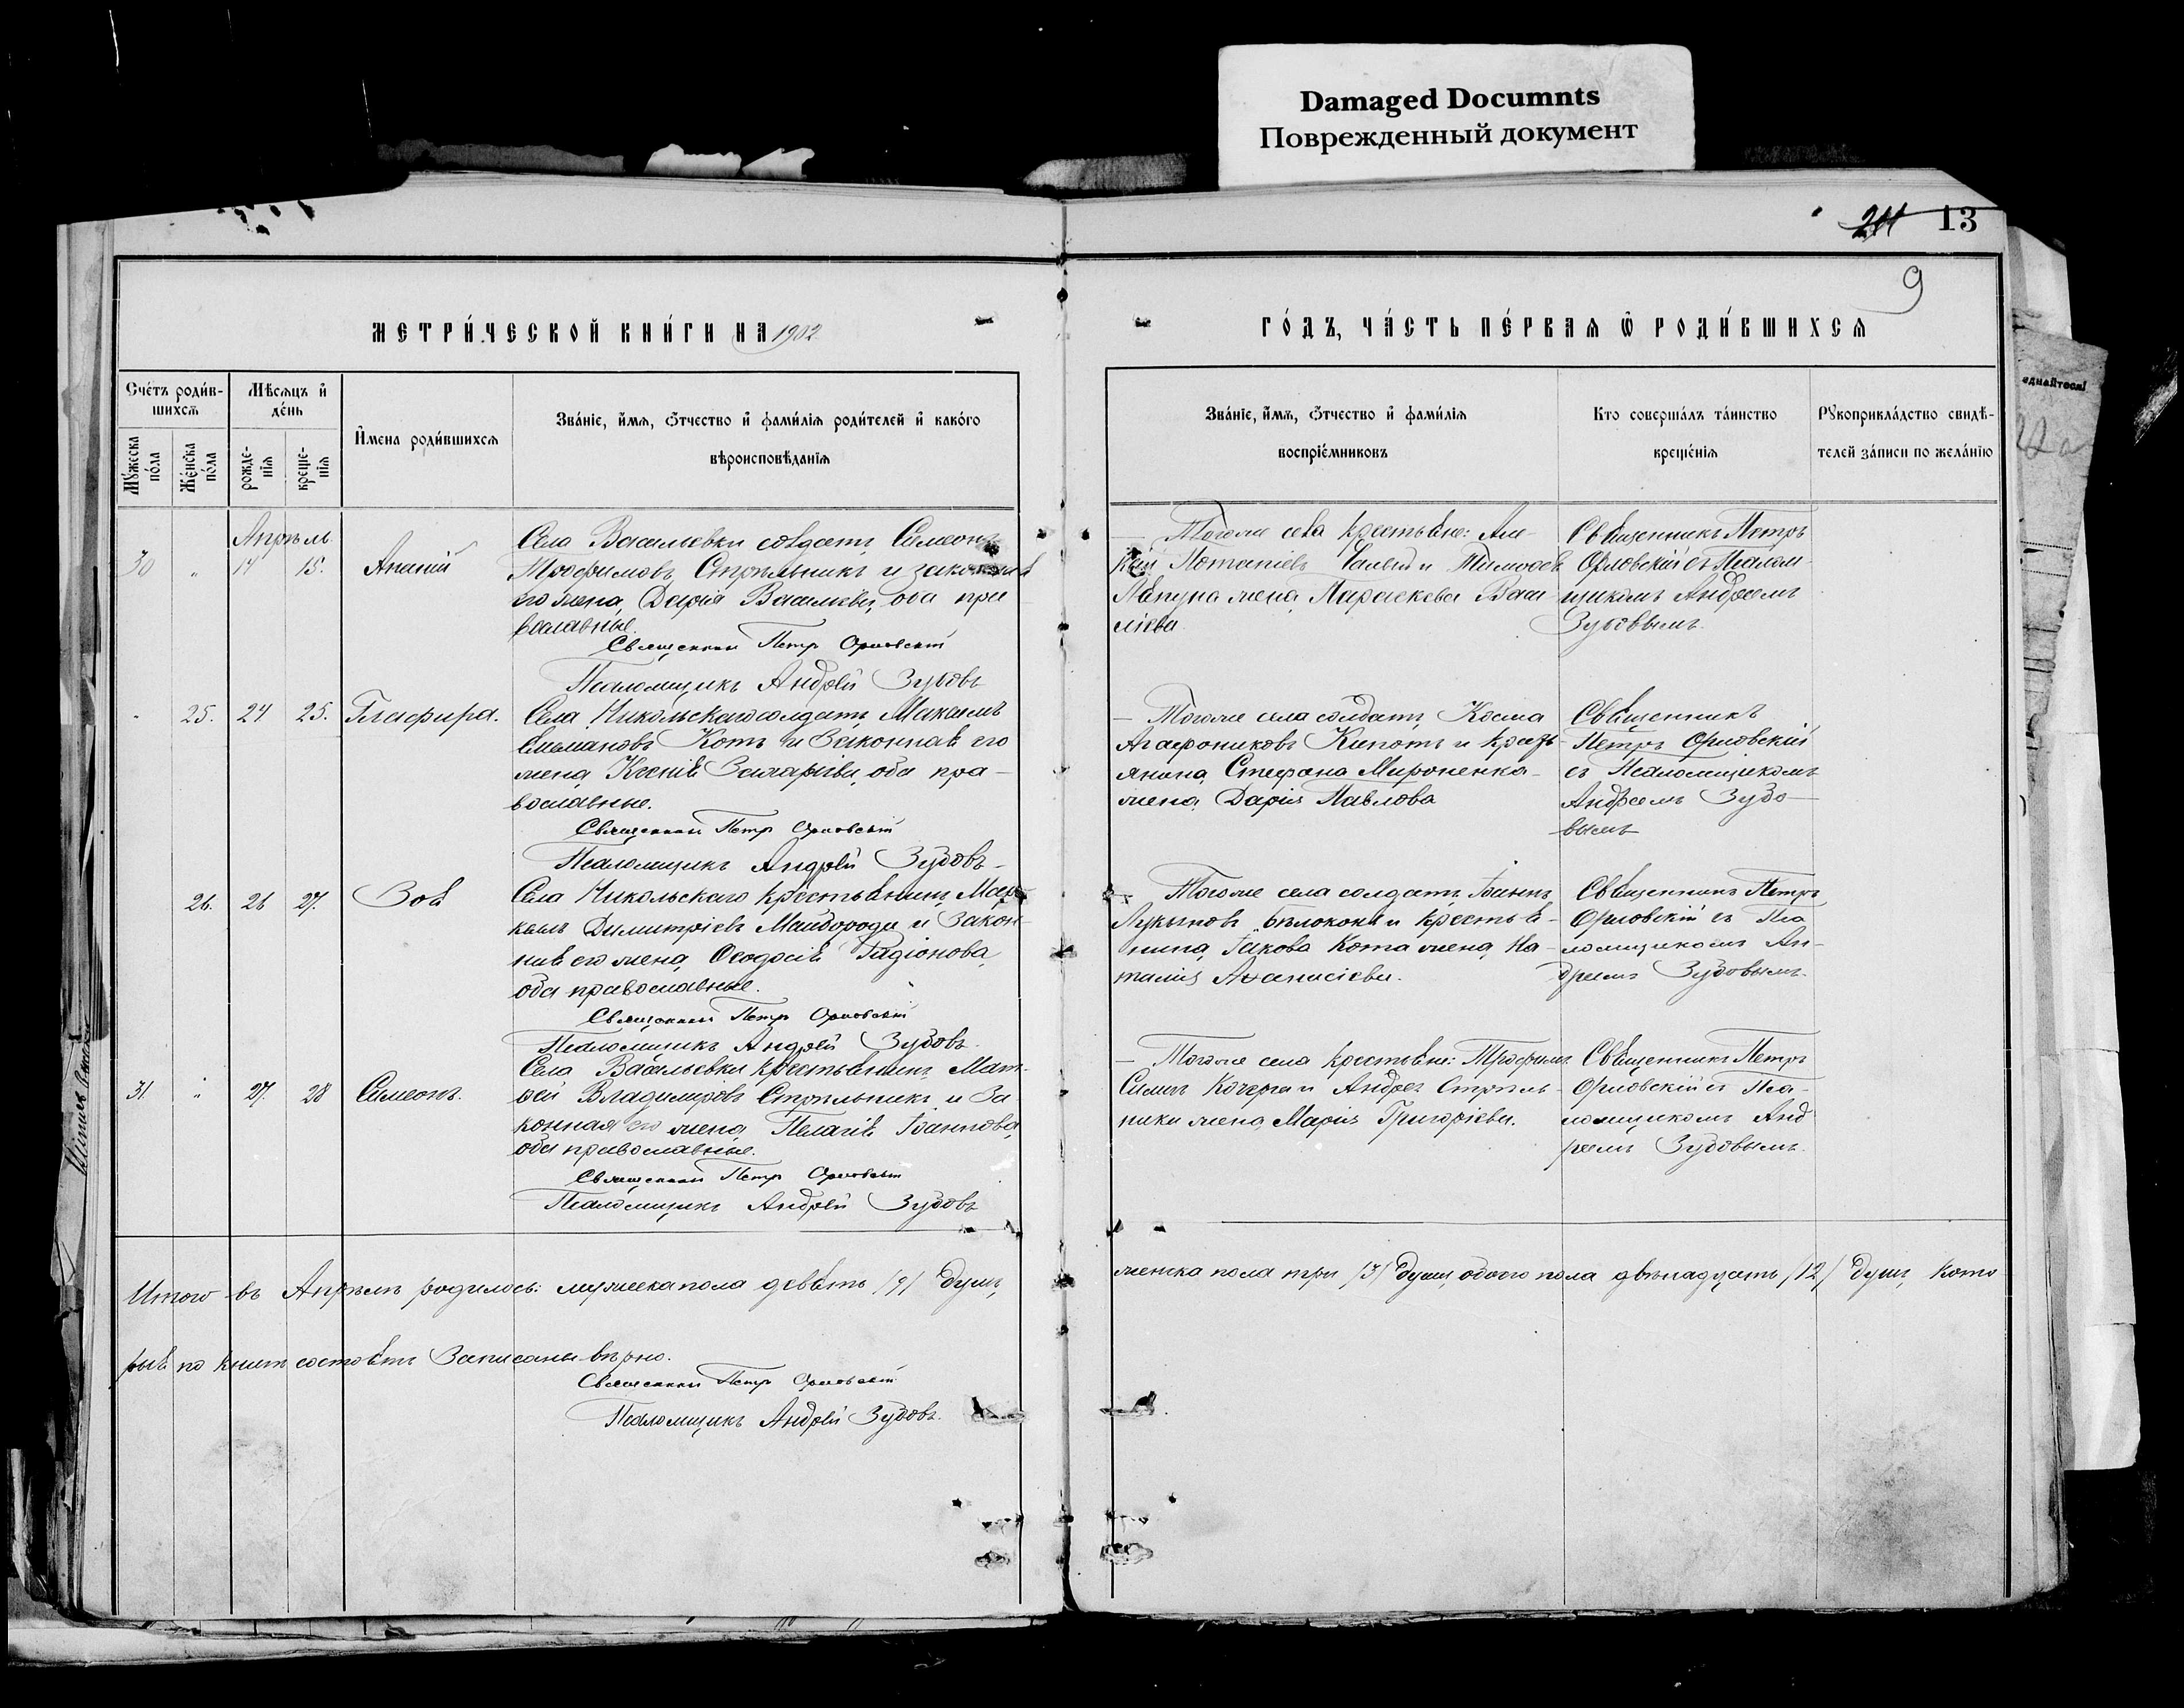 Damaged Documnts
Поврежденный документ
13
9
МЕТРИ́ЧЕСКОЙ КНИ́ГИ НА 1902
ГО́ДЪ, ЧА́СТЬ ПЕ́РВАЯ Ѡ РОДИ́ВШИХСЯ
Сче́тъ роди́в-
шихсѧ
Мꙋ́жеска по́ла
Же́нска по́ла
Мѣ́сѧцъ и҆ де́нь
рожде-
нїѧ
креще-
нїѧ
И҆мена роди́вшихсѧ
Зва́нїе, и҆́мѧ, ѻ҆́тчество и҆ фами́лїѧ роди́телей и҆ како́гѡ
вѣроисповѣ́данїѧ
Зва́нїе, и҆́мѧ, ѻ҆́тчество и҆ фами́лїѧ
воспрїе́мниковъ
Кто соверша́лъ та́инство
креще́нїѧ
Рꙋкоприкла́дство свидѣ́-
телей за́писи по жела́нїю
Апрѣль
30 " 14 15. Ананій
Села Васильевки солдатъ Симеонъ
Трофимовъ Стрѣльникъ и законная
его жена Дарія Васильева, оба пра
вославные.
Священникъ Петръ Орловскій
Псаломщикъ Андрей Зубовъ
Тогоже села крестьяне:
жена Параскева Васи
ліева
Священникъ Петръ
Орловскій съ Псалом-
щикомъ Андреемъ
Зубовымъ.
" 25. 24 25. Глафира.
Села Никольскаго солдатъ Максимъ
Котъ и Законная его
жена Ксенія Захаріева, оба пра-
вославные.
Священникъ Петръ Орловскій
Псаломщикъ Андрей Зубовъ
— Тогоже села солдатъ Косма
Агафониковъ Кипотъ и кресть-
янина Стефана Мироненка
жена Дарія Павлова
Священникъ
Петръ Орловскій
съ Псаломщикомъ
Андреемъ Зубо-
вымъ
26. 26 27. Зоя
Села Никольскаго крестьянинъ
Димитріевъ Майборода и Закон-
ная его жена Ѳеодосія Радіонова,
оба православные.
Священникъ Петръ Орловскій
Псаломщикъ Андрей Зубовъ.
Тогоже села солдатъ Іоаннъ
Лукьяновъ Бѣлоконь и крестья-
нина Іакова Кота жена На-
талія Аѳанасіева.
Священникъ Петръ
Орловскій съ Пса
ломщикомъ Ан-
дреемъ Зубовымъ.
31. " 27. 28 Симеонъ.
Села Васильевки крестьянинъ Мат-
ѳей Владиміровъ Стрѣльникъ и За
конная его жена Пелагія Іоаннова,
оба православные.
Священникъ Петръ Орловскій
Псаломщикъ Андрей Зубовъ
— Тогоже села крестьяне: Трофимъ
Кочерга и Андрея Стрѣль-
ника жена Марія Григоріева.
Священникъ Петръ
Орловскій съ Пса-
ломщикомъ Анд
реемъ Зубовымъ.
Итого въ Апрѣлѣ родилось: мужеска пола девять /9/ душъ,
женска пола три /3/ души, обоего пола двѣнадцать /12/ душъ, кото
рыя по книгѣ состоятъ Записаны вѣрно.
Священникъ Петръ Орловскій
Псаломщикъ Андрей Зубовъ.